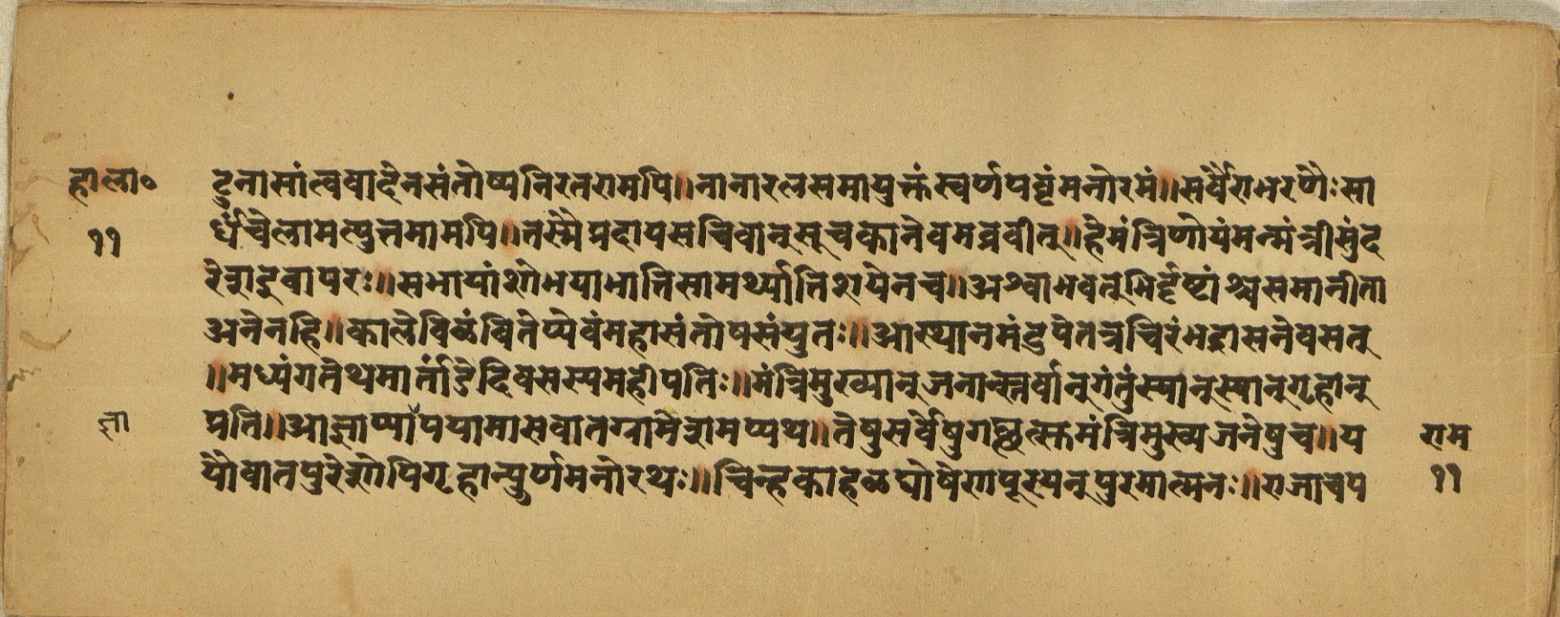 हाला० टुनासांत्ववादेनसंतोष्यनिरतरामपि॥नानारत्नसमायुक्तंस्वर्णपट्टंमनोरमं॥सर्वैराभरणैःसा
११ र्धंचैलामत्युत्तमामपि॥तस्मैप्रदायसचिवानुसूचकानेवमब्रवीत्॥हेमंत्रिणोयंमन्मंत्रीसुंद
रेशइवापरः॥सभायांशोभयाभातिसामर्थ्यातिशयेनच॥अश्वाभवत्भिर्दृष्टांश्चसमानीता
अनेनहि॥कालेविळंबितेप्येवंमहासंतोषसंयुतः॥आस्थानमंडपेतत्रचिरंभद्रासनेवसत्
॥मध्यंगतेथमार्तांडेदिवसस्यमहीपतिः॥मंत्रिमुख्यान्जनान्सर्वान्गंतुंस्वान्स्वान्गृहान्
ज्ञा प्रति॥आज्ञाप्यापयामासवातग्रामेशमप्यथ॥तेषुसर्वेषुगछत्स्तमंत्रिमुख्यजनेषुच॥य राम
यौवातपुरेशोपिगृहान्पुर्णमनोरथः॥चिन्हकाहळघोषेरापूरयन्पुरमात्मनः॥राजाचप ११